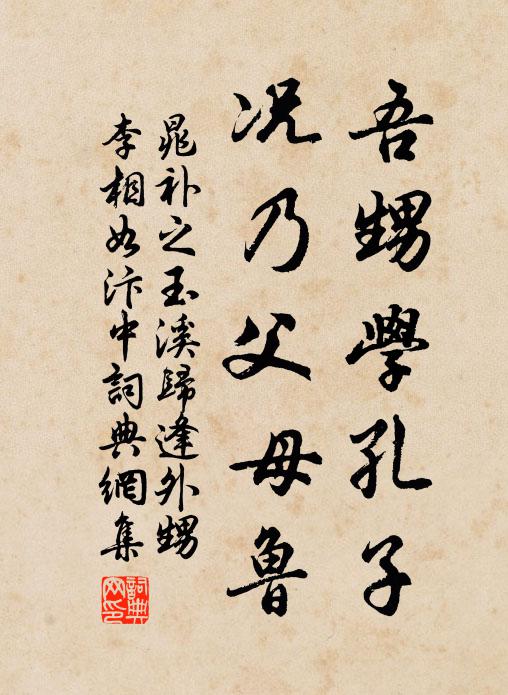 吾甥學孔子
况乃父母魯
晁補之玉溪歸逢外甥
李相如汴中詞典網集